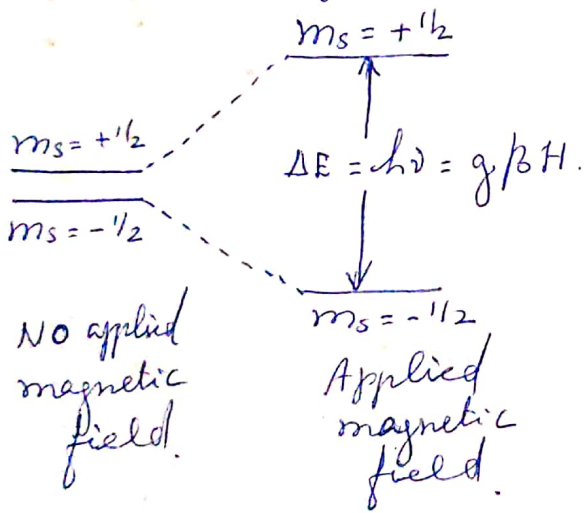 mₛ = +1/2
mₛ = +1/2
mₛ = -1/2
ΔE = hν = gβH.
mₛ = -1/2
No applied
magnetic
field.
Applied
magnetic
field.